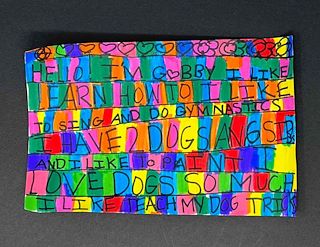 HELLO I'M GABBY I LIKE
LEARN HOW TO I LIKE
TO SING AND DO GYMNASTICS
I HAVE 2 DOGS
AND I LIKE TO PAINT
LOVE DOGS SO MUCH
I LIKE TEACH MY DOG TRICK